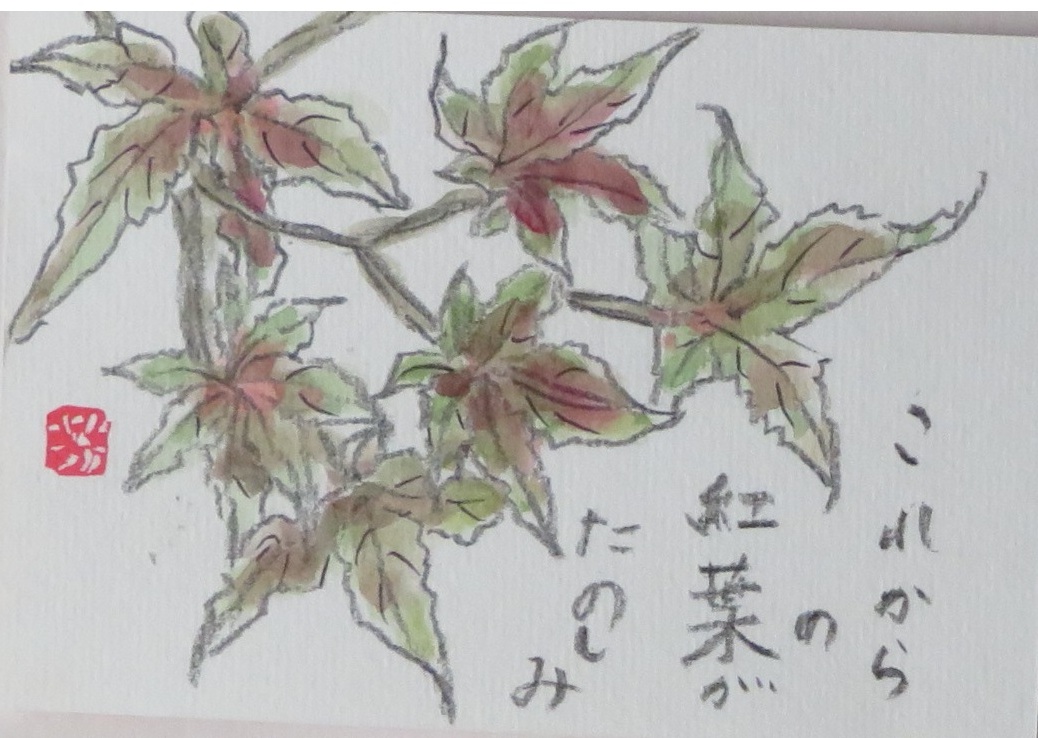 これから
の
紅葉が
たのし
み